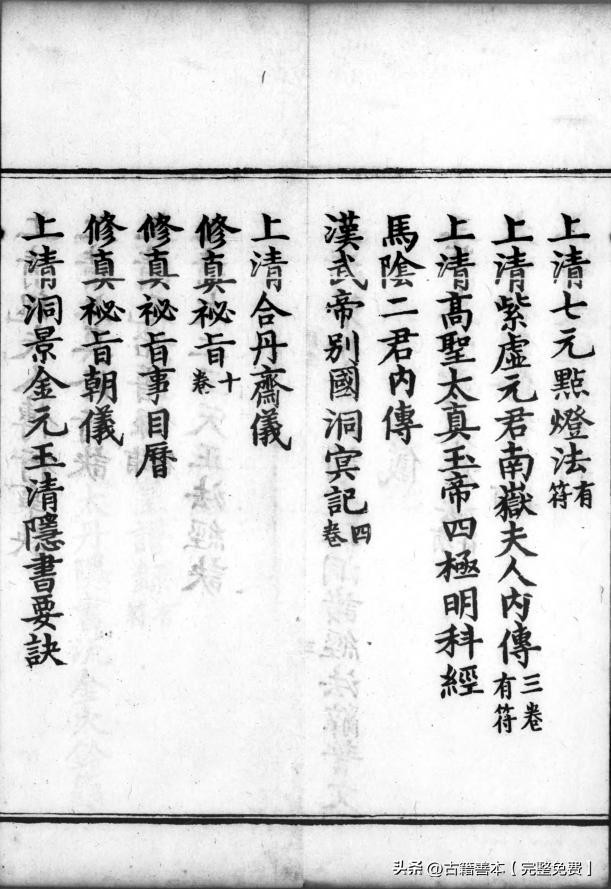 上清七元點燈法有符
上清紫虛元君南嶽夫人內傳三卷有符
上清高聖太真玉帝四極明科經
馬陰二君內傳
漢武帝別國洞冥記四卷
上清合丹齋儀
修真祕旨十卷
修真祕旨事目曆
修真祕旨朝儀
上清洞景金元玉清隱書要訣
头条 @古籍善本【完整免费】